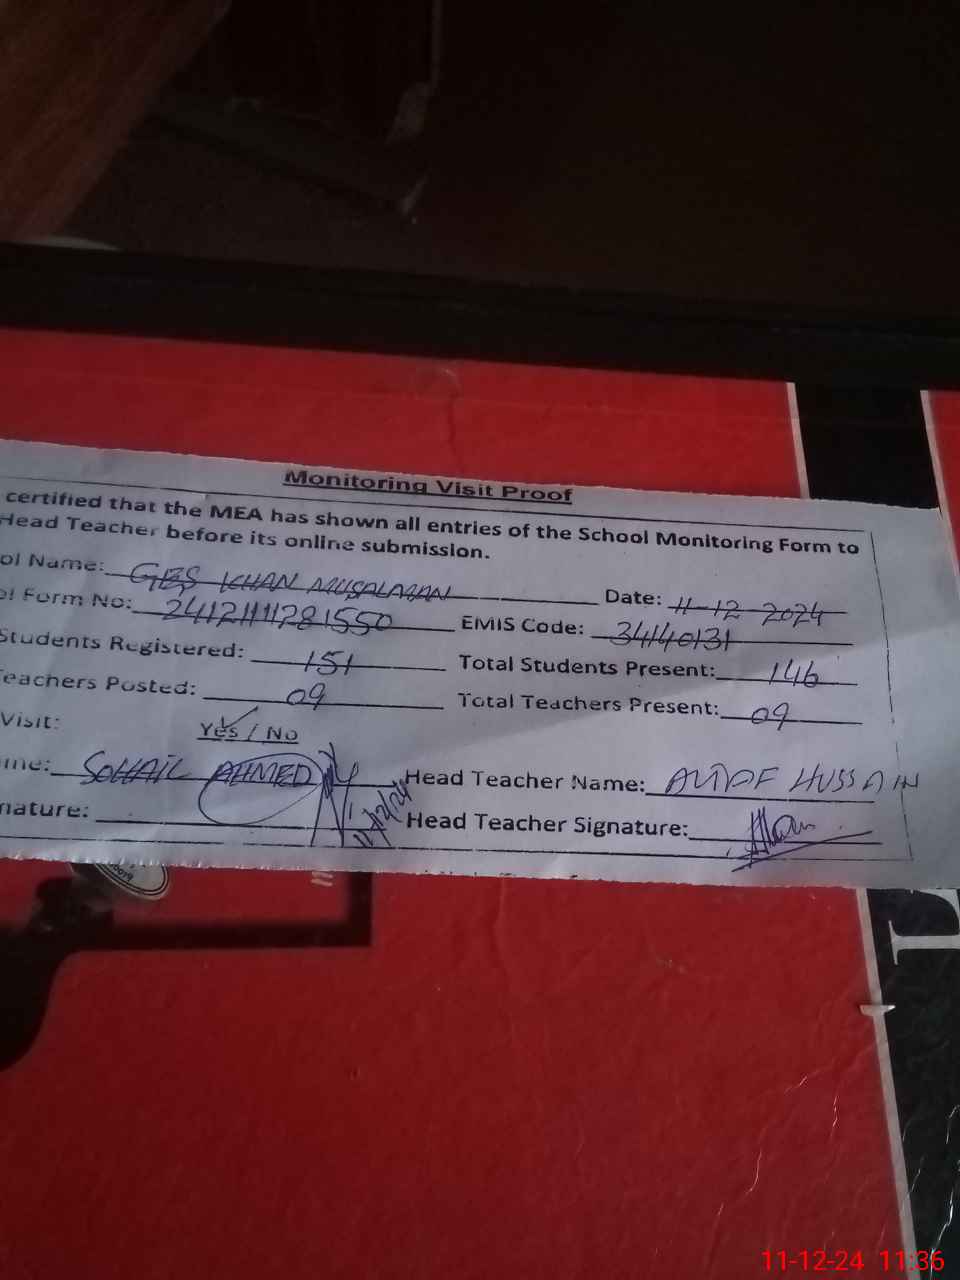 Monitoring Visit Proof
certified that the MEA has shown all entries of the School Monitoring Form to
Head Teacher before its online submission.
ol Name: GES KHAN MUSALMAN Date: 11-12-2024
ol Form No: EMIS Code: 34140131
Students Registered: 151 Total Students Present: 146
eachers Posted: 09 Total Teachers Present: 09
Visit: Yes / No
me: SOHAIL AHMED Head Teacher Name: HUSSAIN
11/12/24
nature: Head Teacher Signature:
11-12-24 11:36